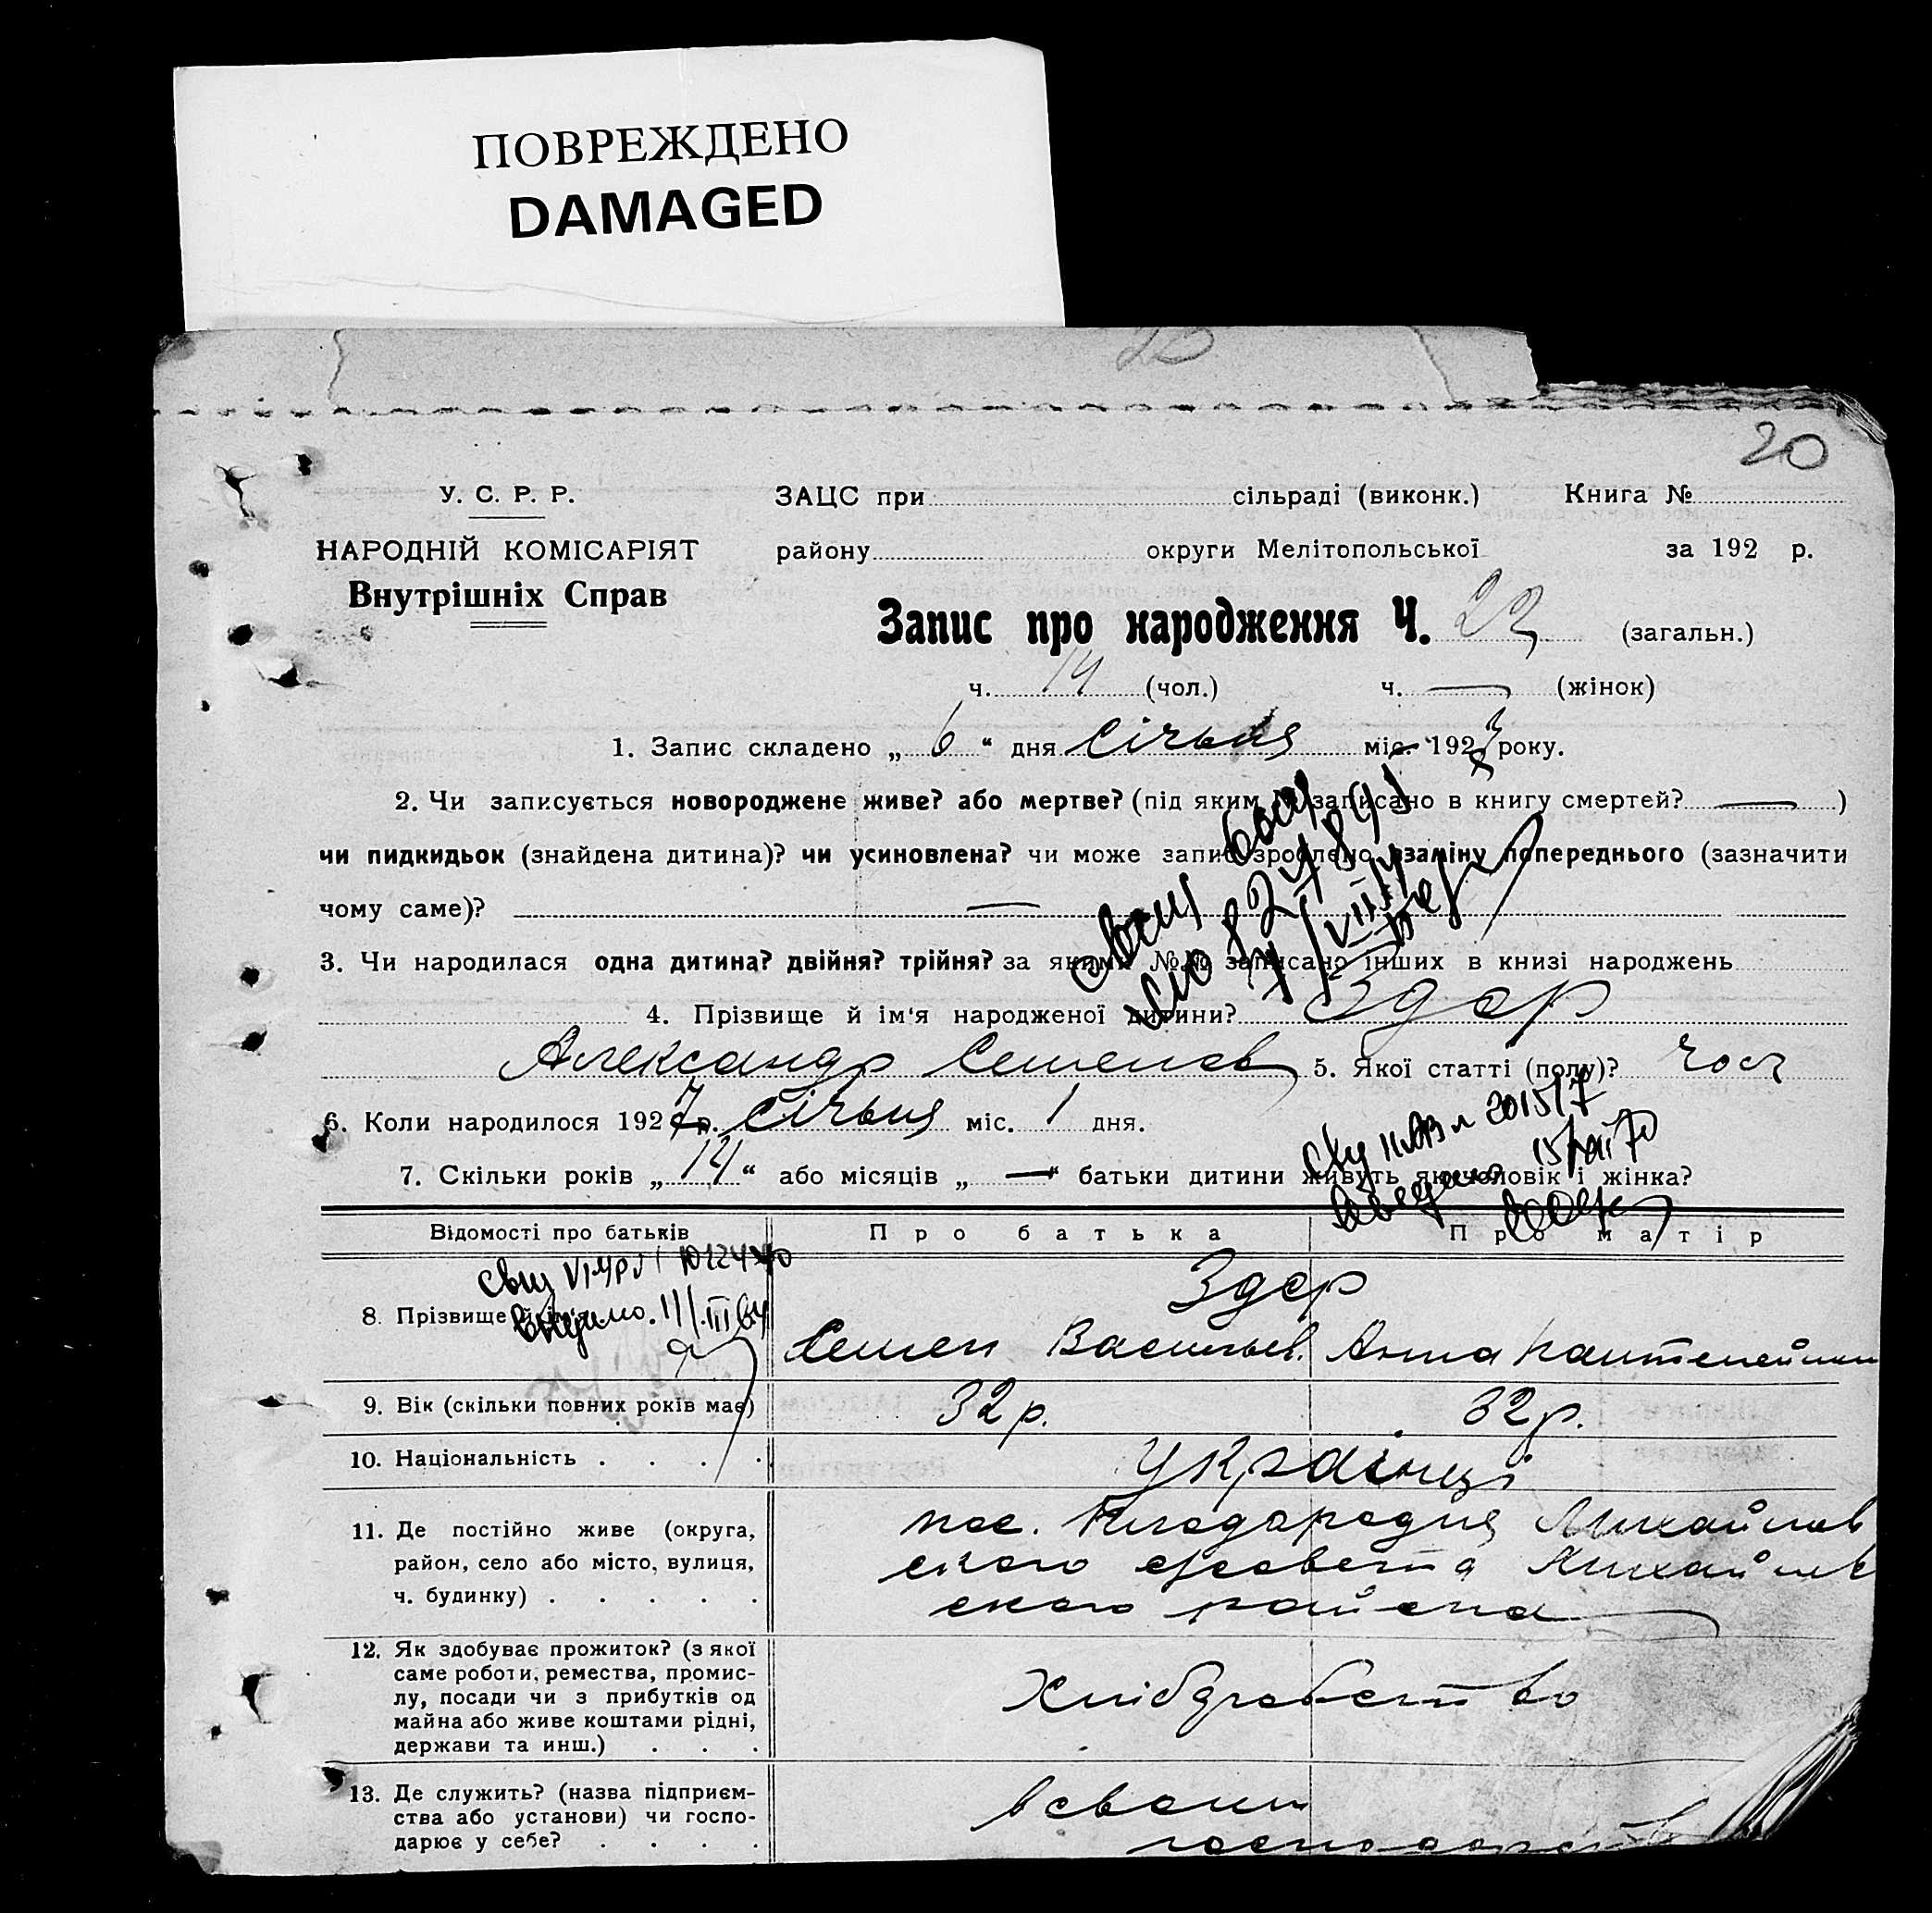 ПОВРЕЖДЕНО
DAMAGED
20
У. С. Р. Р.
НАРОДНІЙ КОМІСАРІЯТ
Внутрішніх Справ
ЗАЦС при сільраді (виконк.) Книга №
району округи Мелітопольської за 192 р.
Запис про народження Ч. 22 (загальн.)
ч. 14 (чол.) ч. — (жінок)
1. Запис складено „ 6 “ дня Січьня міс. 192 року.
2. Чи записується новороджене живе? або мертве? (під яким № записано в книгу смертей? — )
чи пидкидьок (знайдена дитина)? чи усиновлена? чи може запис зроблено взаміну попереднього (зазначити
чому саме)? —
3. Чи народилася одна дитина? двійня? трійня? за якими №№ записано інших в книзі народжень
4. Прізвище й ім'я народженої дитини? Здор
Александр Семенов 5. Якої статті (полу)? чол
6. Коли народилося 1927 р. Січьня міс. 1 дня.
7. Скільки років „ 14 “ або місяців „ — “ батьки дитини живуть як чоловік і жінка?
Відомості про батьків Про батька Про матір
8. Прізвище й ім'я Здор
Семен Васильев. Анна Пантелеймон
9. Вік (скільки повних років має) 32 р. 32 р.
10. Національність . . . . Українці
11. Де постійно живе (округа,
район, село або місто, вулиця,
ч. будинку) . . . . .
пос. Плодородия Михайлов
ского срсовета Михайлов
ского района
12. Як здобуває прожиток? (з якої
саме роботи, ремества, промис-
лу, посади чи з прибутків од
майна або живе коштами рідні,
держави та инш.) . . .
Хліборобство
13. Де служить? (назва підприєм-
ства або установи) чи госпо-
дарює у себе? . . . .
в своим